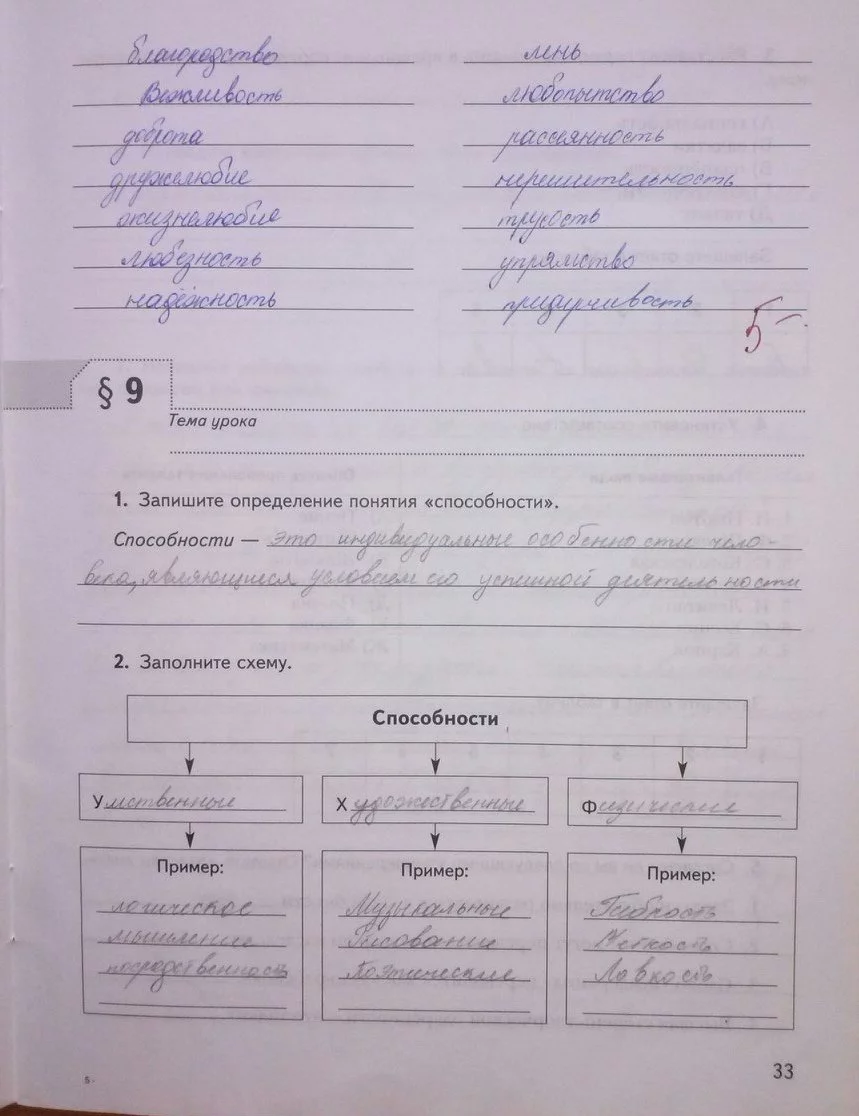 благородство
Вежливость
доброта
дружелюбие
жизнелюбие
любезность
надёжность
лень
любопытство
рассеянность
нерешительность
трусость
упрямство
придирчивость
5-
§ 9
Тема урока
1. Запишите определение понятия «способности».
Способности — это индивидуальные особенности чело-
века, являющиеся условием его успешной деятельности
2. Заполните схему.
Способности
Умственные
Художественные
Физические
Пример:
логическое
мышление
посредственность
Пример:
Музыкальные
Рисование
Поэтические
Пример:
Гибкость
Меткость
Ловкость
33
5